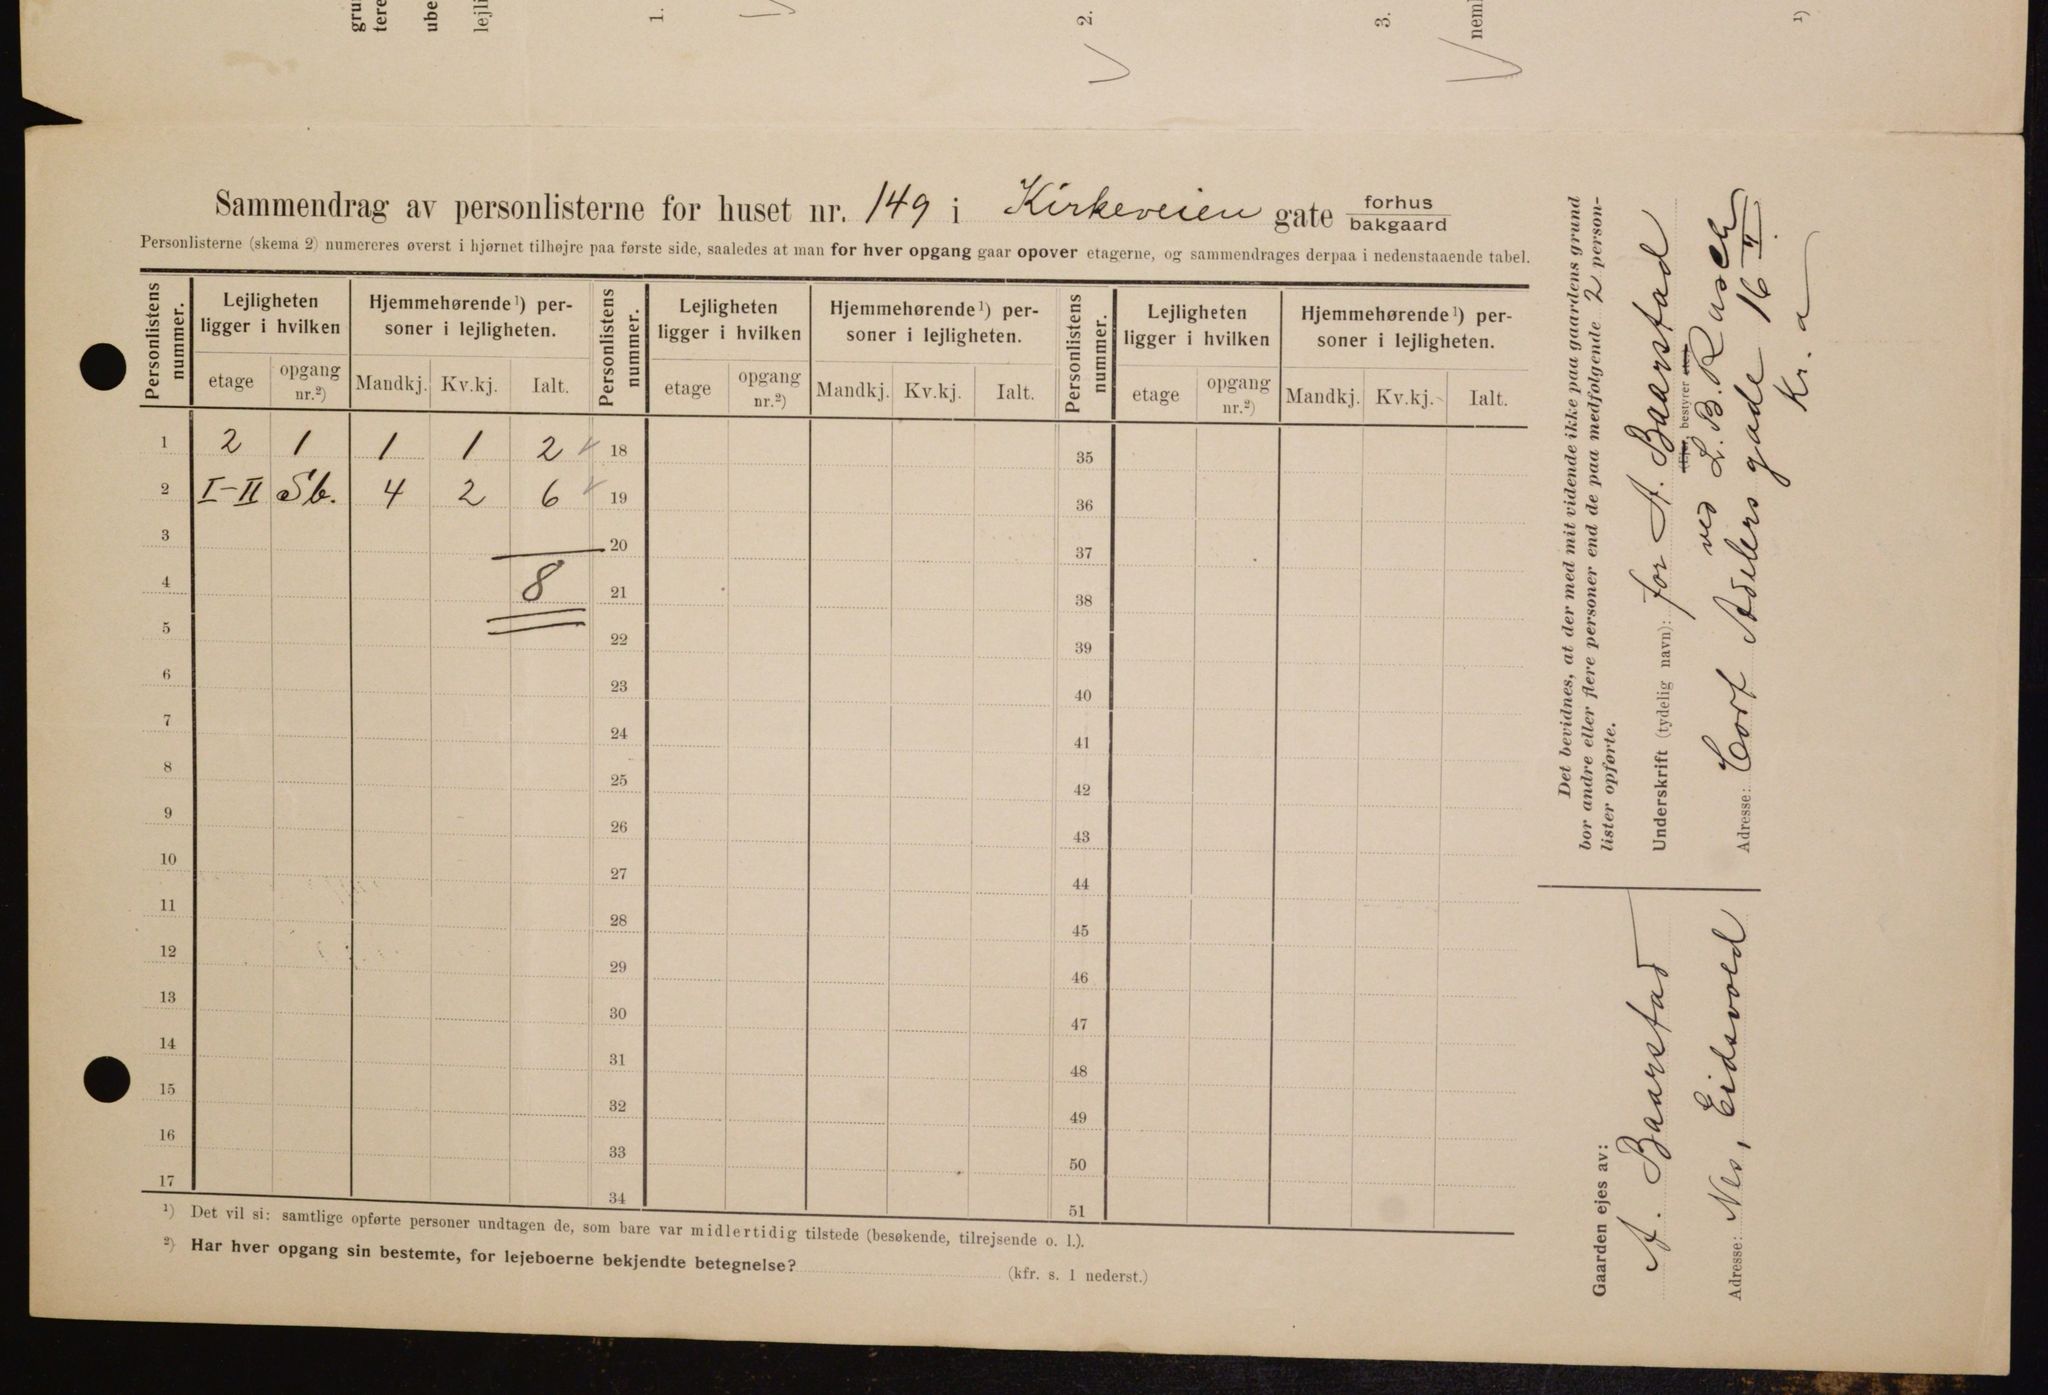 gru
tere
ube
lejli
1.
2.
3.
neml
1)
Sammendrag av personlisterne for huset nr. 149 i Kirkeveien gate forhus bakgaard
Personlisterne (skema 2) numereres øverst i hjørnet tilhøjre paa første side, saaledes at man for hver opgang gaar opover etagerne, og sammendrages derpaa i nedenstaaende tabel.
Personlistens nummer. Lejligheten ligger i hvilken Hjemmehørende¹) personer i lejligheten. Personlistens nummer. Lejligheten ligger i hvilken Hjemmehørende¹) personer i lejligheten. Personlistens nummer. Lejligheten ligger i hvilken Hjemmehørende¹) personer i lejligheten.
etage opgang nr.²) Mandkj. Kv.kj. Ialt. etage opgang nr.²) Mandkj. Kv.kj. Ialt. etage opgang nr.²) Mandkj. Kv.kj. Ialt.
1 2 1 1 1 2 18 35
2 I-II Sb. 4 2 6 19 36
3 20 37
4 8 21 38
5 22 39
6 23 40
7 24 41
8 25 42
9 26 43
10 27 44
11 28 45
12 29 46
13 30 47
14 31 48
15 32 49
16 33 50
17 34 51
¹) Det vil si: samtlige opførte personer undtagen de, som bare var midlertidig tilstede (besøkende, tilrejsende o. l.).
²) Har hver opgang sin bestemte, for lejeboerne bekjendte betegnelse? (kfr. s. 1 nederst.)
Det bevidnes, at der med mit vidende ikke paa gaardens grund
bor andre eller flere personer end de paa medfølgende 2 person-
lister opførte.
Underskrift (tydelig navn): for A. Baarstad
(Ejer, bestyrer
ved L. B. Rasch
Adresse: Cort Adelers gade 16 II
Kr.a
Gaarden ejes av:
A. Baarstad
Adresse: Nes, Eidsvold